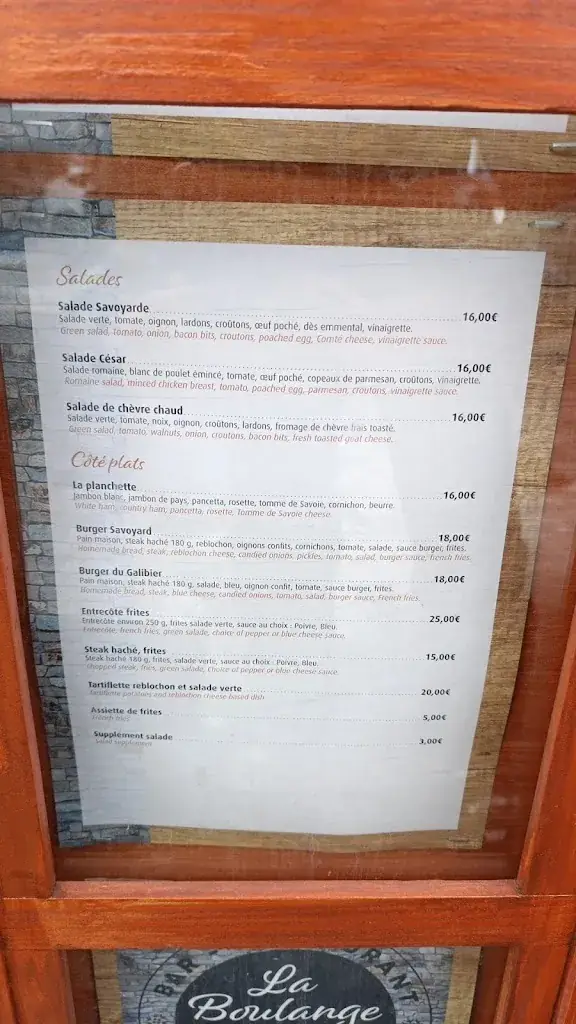 Salades
Salade Savoyarde 16,00€
Salade verte, tomate, oignon, lardons, croûtons, œuf poché, dès emmental, vinaigrette.
Green salad, tomato, onion, bacon bits, croutons, poached egg, Comté cheese, vinaigrette sauce.
Salade César 16,00€
Salade romaine, blanc de poulet émincé, tomate, œuf poché, copeaux de parmesan, croûtons, vinaigrette.
Romaine salad, minced chicken breast, tomato, poached egg, parmesan, croutons, vinaigrette sauce.
Salade de chèvre chaud 16,00€
Salade verte, tomate, noix, oignon, croûtons, lardons, fromage de chèvre frais toasté.
Green salad, tomato, walnuts, onion, croutons, bacon bits, fresh toasted goat cheese.
Côté plats
La planchette 16,00€
Jambon blanc, jambon de pays, pancetta, rosette, tomme de Savoie, cornichon, beurre.
White ham, country ham, pancetta, rosette, Tomme de Savoie cheese.
Burger Savoyard 18,00€
Pain maison, steak haché 180 g, reblochon, oignons confits, cornichons, tomate, salade, sauce burger, frites.
Homemade bread, steak, reblochon cheese, candied onions, pickles, tomato, salad, burger sauce, french fries.
Burger du Galibier 18,00€
Pain maison, steak haché 180 g, salade, bleu, oignon confit, tomate, sauce burger, frites.
Homemade bread, steak, blue cheese, candied onions, tomato, salad, burger sauce, French fries.
Entrecôte frites 25,00€
Entrecôte environ 250 g, frites salade verte, sauce au choix : Poivre, Bleu.
Entrecôte, french fries, green salade, choice of pepper or blue cheese sauce.
Steak haché, frites 15,00€
Steak haché 180 g, frites, salade verte, sauce au choix : Poivre, Bleu.
chopped steak, fries, green salade, Choice of pepper or blue cheese sauce.
Tartiflette reblochon et salade verte 20,00€
Tartiflette potatoes and reblochon cheese based dish
Assiette de frites 5,00€
French fries
Supplément salade 3,00€
Salad supplement
BAR
La
Boulange